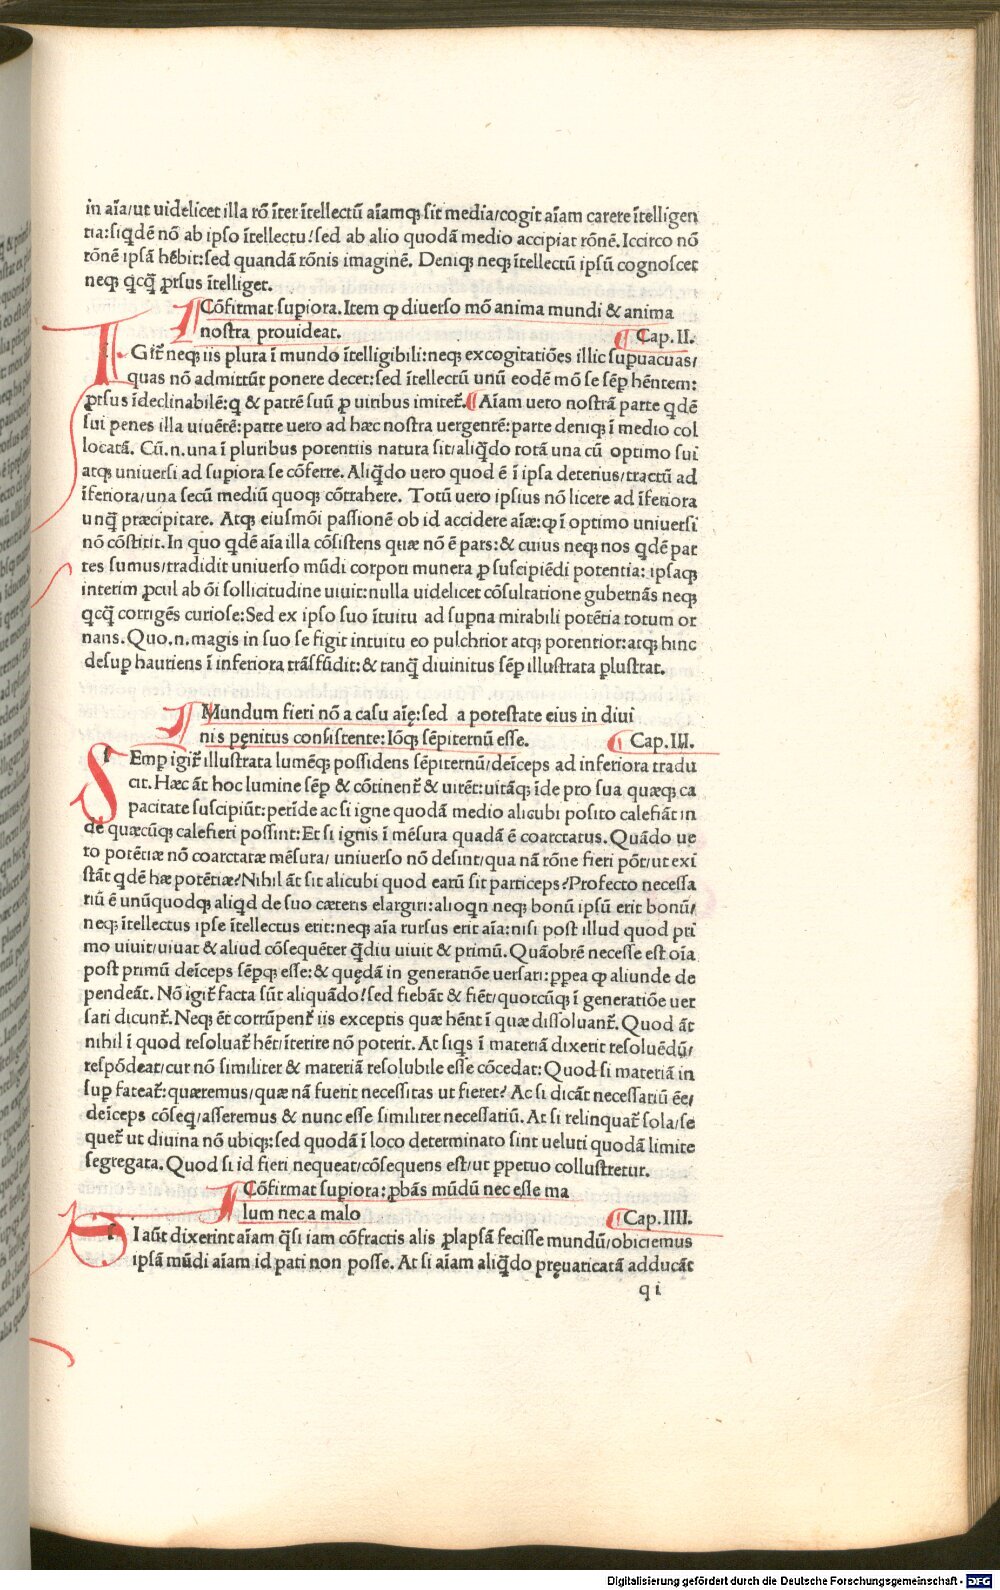 in aīa/ut uidelicet illa rō īter ītellectū aīamqꝫ sit media/cogit aīam carere ītelligen
tia:siq̄dē nō ab ipso ītellectu/sed ab alio quodā medio accipiat rōnē. Iccirco nō
rōnē ipsā hēbit:sed quandā rōnis imaginē. Deniqꝫ neqꝫ ītellectū ipsū cognoscet
neqꝫ qcq̄ ꝓrsus ītelliget.
Cōfirmat suꝑiora. Item ꝙ diuerso mō anima mundi & anima
nostra prouideat. Cap. II.
IGit̄ neqꝫ iis plura ī mundo ītelligibili:neqꝫ excogitatiōes illic suꝑuacuas/
quas nō admittūt ponere decet:sed ītellectū unū eodē mō se sēꝑ hēntem:
ꝓrsus īdeclinabilē:q & patrē suū ꝓ uiribus imitet̄. Aīam uero nostrā parte qdē
sui penes illa uiuētē:parte uero ad hæc nostra uergentē:parte deniqꝫ ī medio col
locatā. Cū.n.una ī pluribus potentiis natura sit/aliq̄do totā una cū optimo sui
atqꝫ uniuersi ad suꝑiora se cōferre. Aliq̄do uero quod ē ī ipsa deterius/tractū ad
īferiora/una secū mediū quoqꝫ cōtrahere. Totū uero ipsius nō licere ad īferiora
unq̄ præcipitare. Atqꝫ eiusmōi passionē ob id accidere aīæ:ꝙ ī optimo uniuersi
nō cōstitit. In quo qdē aīa illa cōsistens quæ nō ē pars:& cuius neqꝫ nos qdē par
tes sumus/tradidit uniuerso mūdi corpori munera ꝓ suscipiēdi potentia: ipsaqꝫ
interim ꝓcul ab ōi sollicitudine uiuit:nulla uidelicet cōsultatione gubernās neqꝫ
qcq̄ corrigēs curiose:Sed ex ipso suo ītuitu ad suꝑna mirabili potētia totum or
nans. Quo.n.magis in suo se figit intuitu eo pulchrior atqꝫ potentior:atqꝫ hinc
desuꝑ hauriens ī inferiora trāsfūdit:& tanq̄ diuinitus sēꝑ illustrata ꝑlustrat.
Mundum fieri nō a casu aīę:sed a potestate eius in diui
nis pęnitus consistente:Iōqꝫ sēpiternū esse. Cap. III.
SEmꝑ igit̄ illustrata lumēqꝫ possidens sēpiternū/deīceps ad inferiora tradu
cit. Hæc āt hoc lumine sēꝑ & cōtinent̄ & uirēt:uitāqꝫ īde pro sua quæqꝫ ca
pacitate suscipiūt:perīde ac si igne quodā medio alicubi posito calefiāt in
de quæcūqꝫ calefieri possint:Et si ignis ī mēsura quadā ē coarctatus. Quādo ue
ro potētiæ nō coarctatæ mēsura/ uniuerso nō desint/qua nā rōne fieri pōt/ut exi
stāt qdē hæ potētiæ?Nihil āt sit alicubi quod earū sit particeps?Profecto necessa
riū ē unūquodqꝫ aliqd de suo cæteris elargiri:alioqn neqꝫ bonū ipsū erit bonū/
neqꝫ ītellectus ipse ītellectus erit:neqꝫ aīa rursus erit aīa:nisi post illud quod pri
mo uiuit/uiuat & aliud cōsequēter q̄diu uiuit & primū. Quāobrē necesse est oīa
post primū deīceps sēꝑqꝫ esse:& quędā in generatiōe uersari:ꝓpea ꝙ aliunde de
pendeāt. Nō igit̄ facta sūt aliquādo/sed fiebāt & fiēt/quotcūqꝫ ī generatiōe uer
sari dicunt̄. Neqꝫ ēt corrūpent̄ iis exceptis quæ hēnt ī quæ dissoluant̄. Quod āt
nihil ī quod resoluat̄ hēt/īterire nō poterit. At siqs ī materiā dixerit resoluēdū/
respōdeat/cur nō similiter & materiā resolubile esse cōcedat:Quod si materiā in
suꝑ fateat̄:quæremus/quæ nā fuerit necessitas ut fieret? Ac si dicāt necessariū ēe/
deīceps cōseq/asseremus & nunc esse similiter necessariū. At si relinquat̄ sola/se
quet̄ ut diuina nō ubiqꝫ:sed quodā ī loco determinato sint ueluti quodā limite
segregata. Quod si id fieri nequeat/cōsequens est/ut ꝑpetuo collustretur.
Cōfirmat suꝑiora:ꝓbās mūdū nec esse ma
lum nec a malo Cap. IIII.
SI aūt dixerint aīam q̄si iam cōfractis alis ꝓlapsā fecisse mundū/obiciemus
ipsā mūdi aīam id pati non posse. At si aīam aliq̄do pręuaricatā adducāt
q i
Digitalisierung gefördert durch die Deutsche Forschungsgemeinschaft - DFG